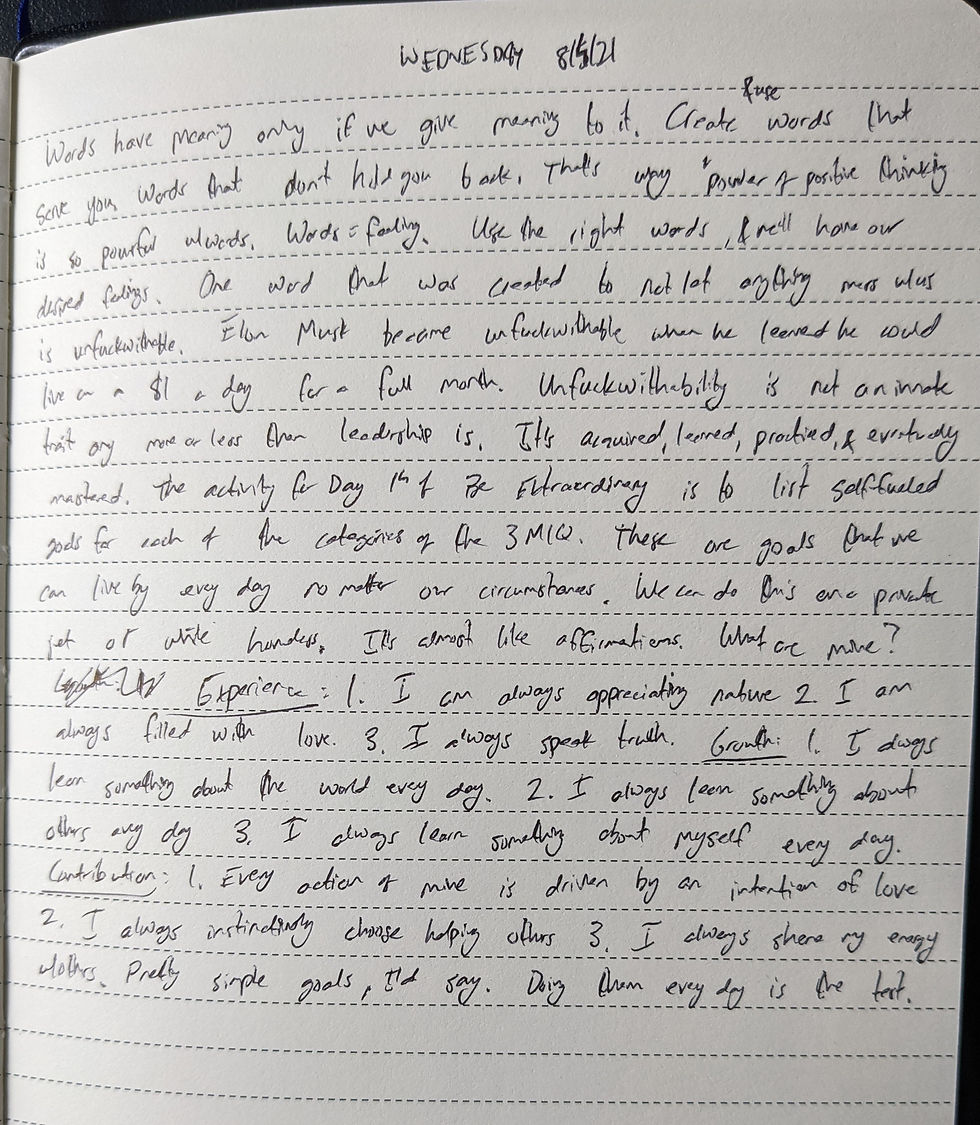 WEDNESDAY 8/5/21
& use
Words have meaning only if we give meaning to it. Create words that
serve you, words that don't hold you back. That's why power of positive thinking
is so powerful w/words. Words = feeling. Use the right words, & we'll have our
desired feelings. One word that was created to not let anything mess w/us
is unfuckwithable. Elon Musk became unfuckwithable when he learned he could
live on a $1 a day for a full month. Unfuckwithability is not an innate
trait any more or less than leadership is. It's acquired, learned, practiced, & eventually
mastered. The activity for Day of Be Extraordinary is to list self-fueled
goals for each of the categories of the 3 MIQ. These are goals that we
can live by every day no matter our circumstances. We can do this on a private
jet or while homeless. It's almost like affirmations. What are mine?
Experience: 1. I am always appreciating nature 2. I am
always filled with love. 3. I always speak truth. Growth: 1. I always
learn something about the world every day. 2. I always learn something about
othrs evry day 3. I always learn something about myself every day.
Contribution: 1. Every action of mine is driven by an intention of love
2. I always instinctively choose helping othrs 3. I always share my energy
w/othrs. Pretty simple goals, I'd say. Doing them every day is the test.